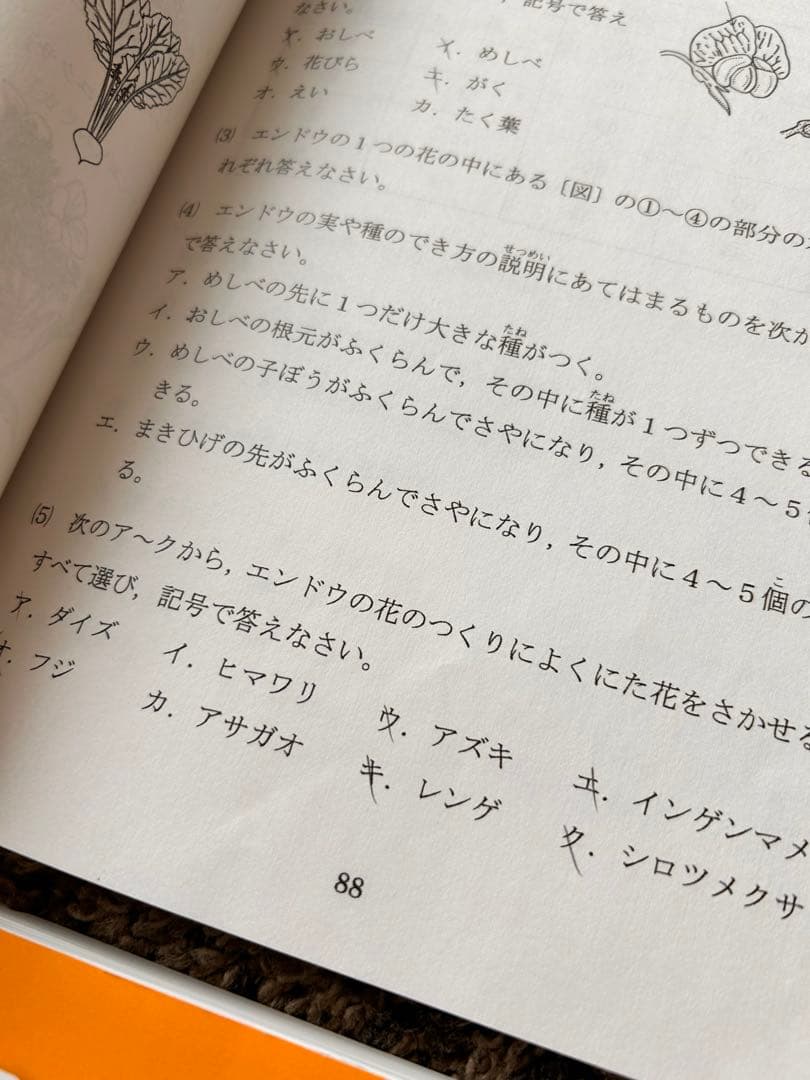 なさい。
記号で答え
ア．おしべ　イ．めしべ
ウ．花びら　キ．がく
オ．えい　カ．たく葉
(3) エンドウの１つの花の中にある〔図〕の①～④の部分の
れぞれ答えなさい。
(4) エンドウの実や種のでき方の説明にあてはまるものを次か
せつめい
で答えなさい。
ア．めしべの先に１つだけ大きな種がつく。
たね
イ．おしべの根元がふくらんで，その中に種が１つずつできる
たね
ウ．めしべの子ぼうがふくらんでさやになり，その中に４～５
きる。
エ．まきひげの先がふくらんでさやになり，その中に４～５個の
こ
る。
(5) 次のア～クから，エンドウの花のつくりによくにた花をさかせる
すべて選び，記号で答えなさい。
ア．ダイズ　イ．ヒマワリ　ウ．アズキ　エ．インゲンマメ
オ．フジ　カ．アサガオ　キ．レンゲ　ク．シロツメクサ
88